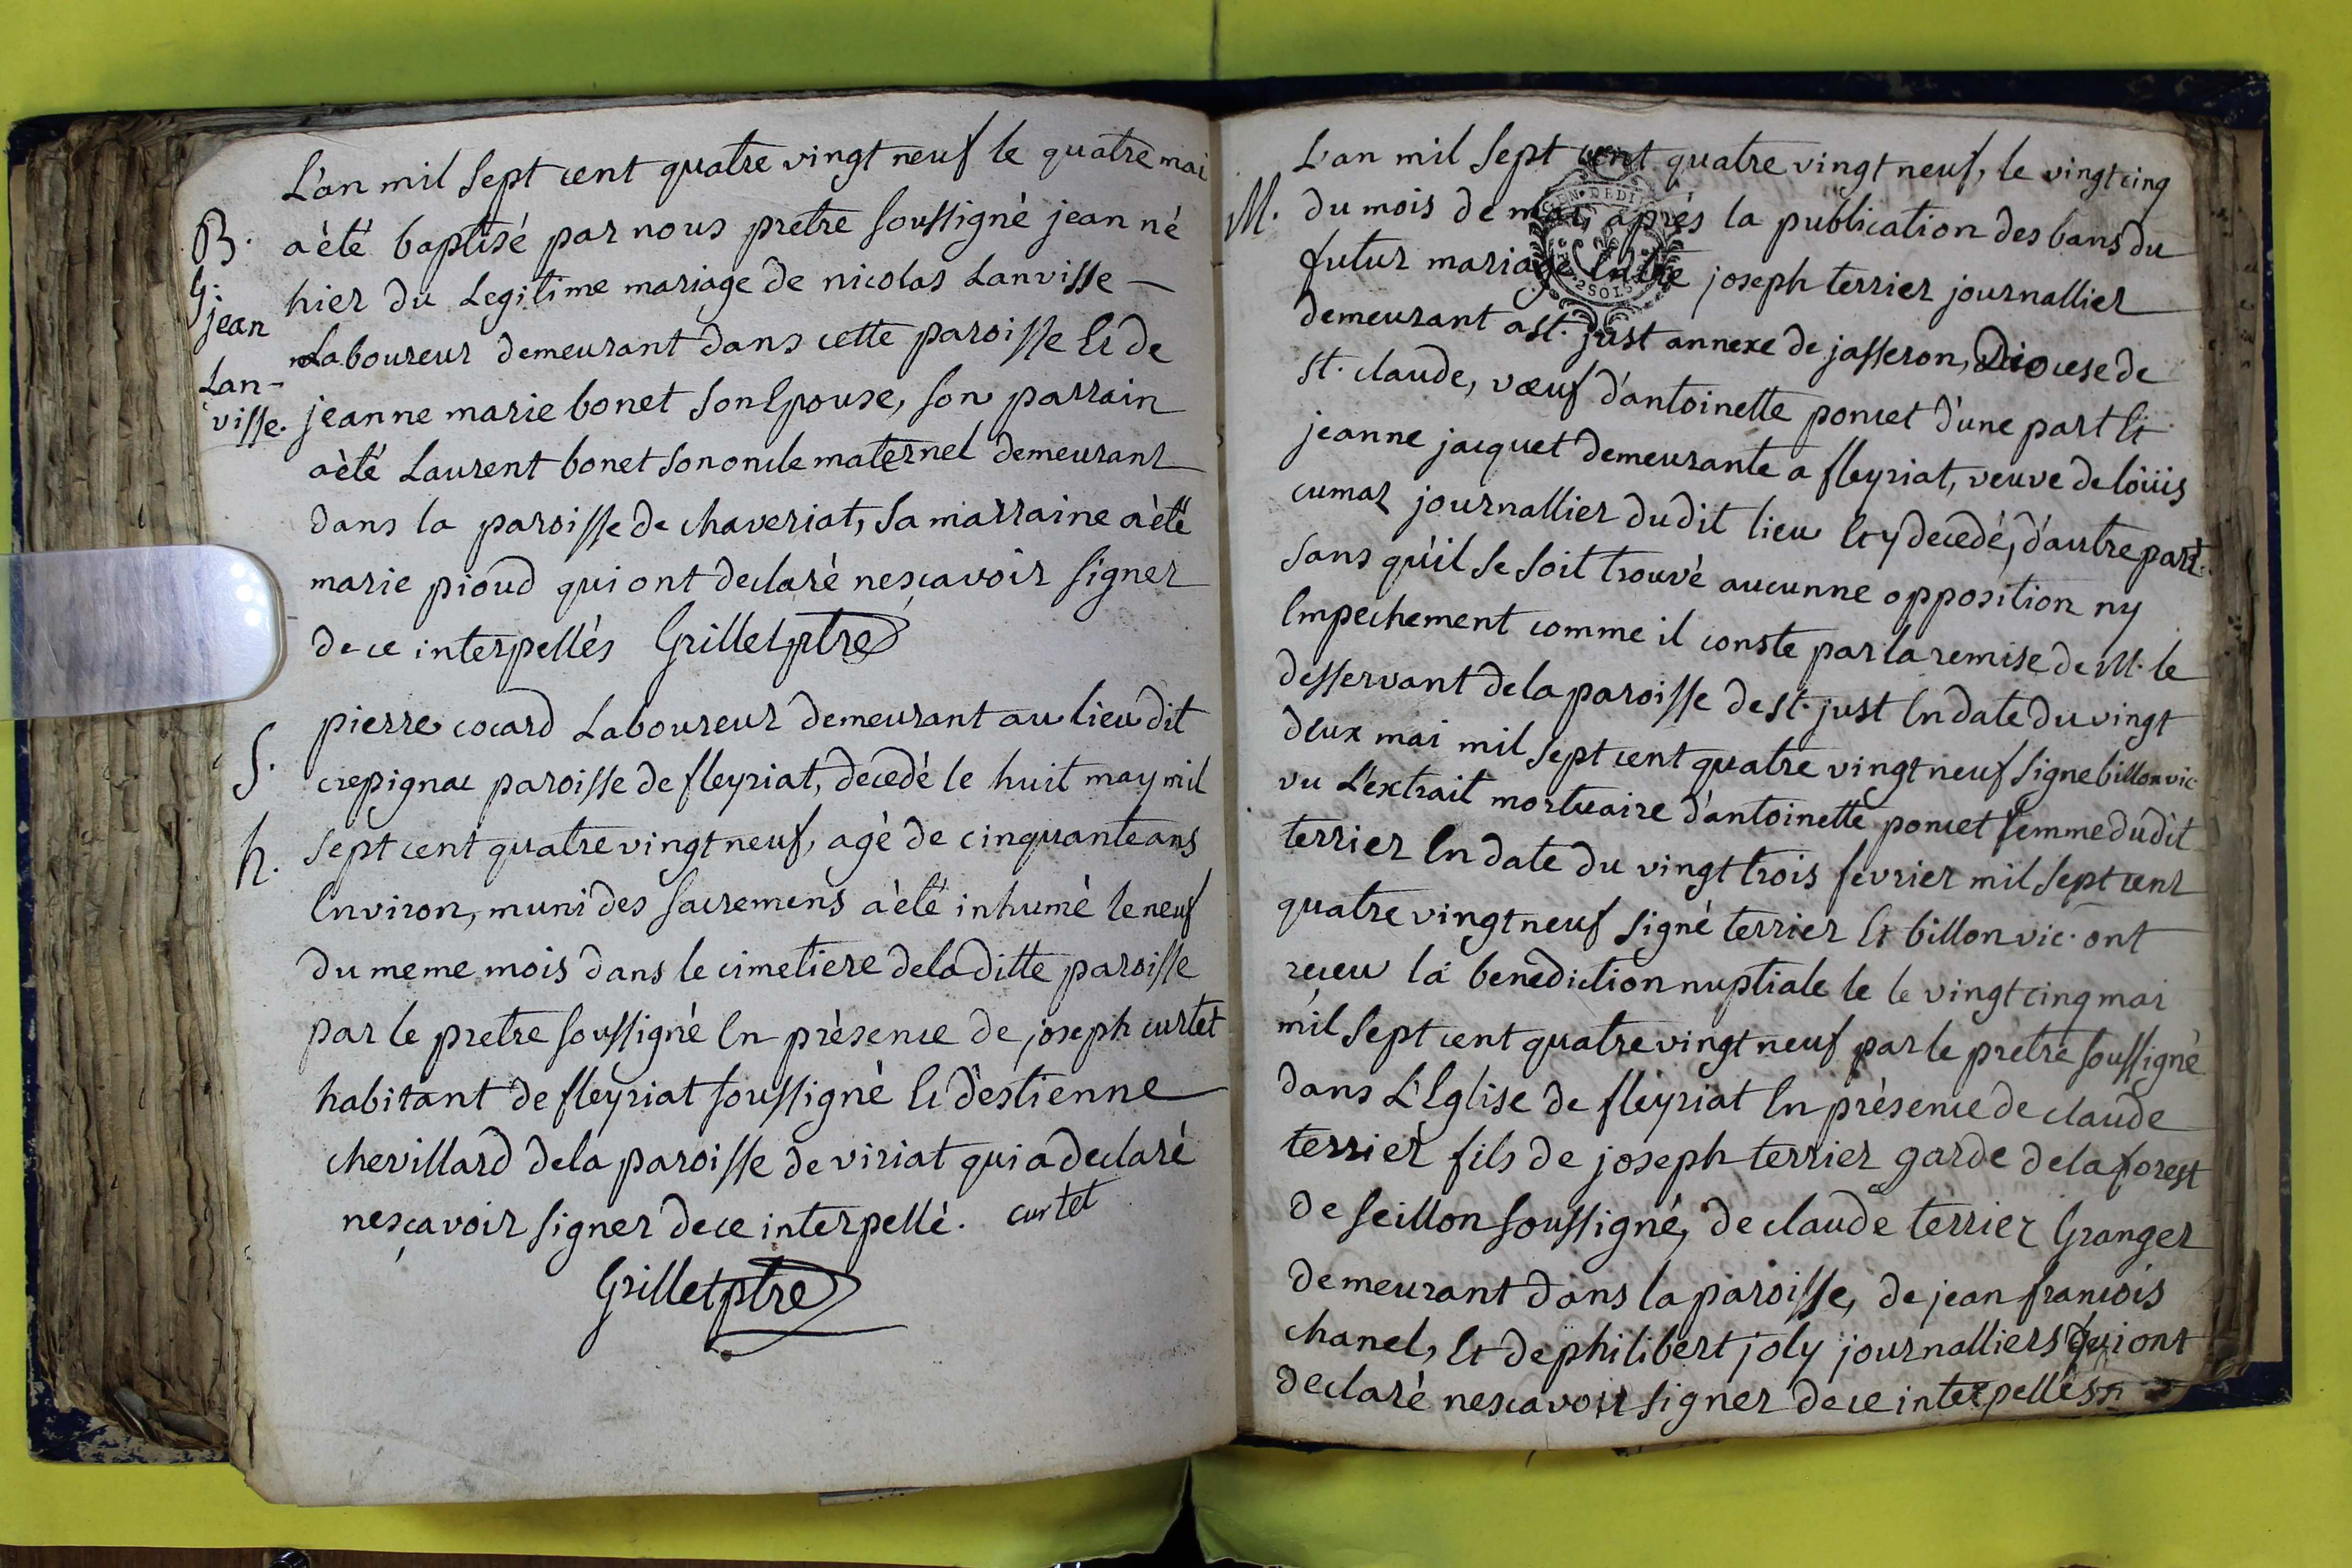 L'an mil sept cent quatre vingt neuf le quatre mai
B. a èté baptisé par nous pretre soussigné jean né
G. hier du Legitime mariage de nicolas Lanvisse
jean Laboureur demeurant dans cette paroisse Et de
Lan-
visse. jeanne marie bonet son Epouse, son parrain
a èté Laurent bonet son oncle maternel demeurant
dans la paroisse de chaveriat, sa marraine a èté
marie pioud qui ont declaré nescavoir signer
de ce interpellés Grillet ptre
pierre cocard Laboureur demeurant au lieu dit
S. crepignac paroisse de fleyriat, decedé le huit may mil
h. sept cent quatre vingt neuf, agé de cinquante ans
Environ, muni des sacremens a èté inhumé le neuf
du meme mois dans le cimetiere de la ditte paroisse
par le pretre soussigné En présence de joseph curtet
habitant de fleyriat soussigné Et d'estienne
chevillard de la paroisse de viriat qui a declaré
nesçavoir signer de ce interpellé. curtet
Grillet ptre
L'an mil sept cent quatre vingt neuf, le vingt cinq
M. du mois de mai, après la publication des bans du
futur mariage Entre joseph terrier journallier
demeurant a st. just annexe de jasseron, Diocese de
st. claude, vœuf d'antoinette poncet d'une part Et
jeanne jacquet demeurante a fleyriat, veuve de loüis
cumar journallier du dit lieu Et y decedé, d'autre part.
sans qu'il se soit trouvé aucunne opposition ny
Empechement comme il conste par la remise de M. le
desservant de la paroisse de st. just En date du vingt
deux mai mil sept cent quatre vingt neuf signe billon vic.
vu L'extrait mortuaire d'antoinette poncet femme du dit
terrier En date du vingt trois fevrier mil sept cent
quatre vingt neuf signé terrier Et billon vic. ont
receu la benediction nuptiale le le vingt cinq mai
mil sept cent quatre vingt neuf par le prétre soussigné
dans L'Eglise de fleyriat En présence de claude
terrier fils de joseph terrier garde de la forest
de seillon soussigné, de claude terrier Granger
demeurant dans la paroisse, de jean francois
chanel, Et de philibert joly journalliers qui ont
declaré nescavoir signer de ce interpellés